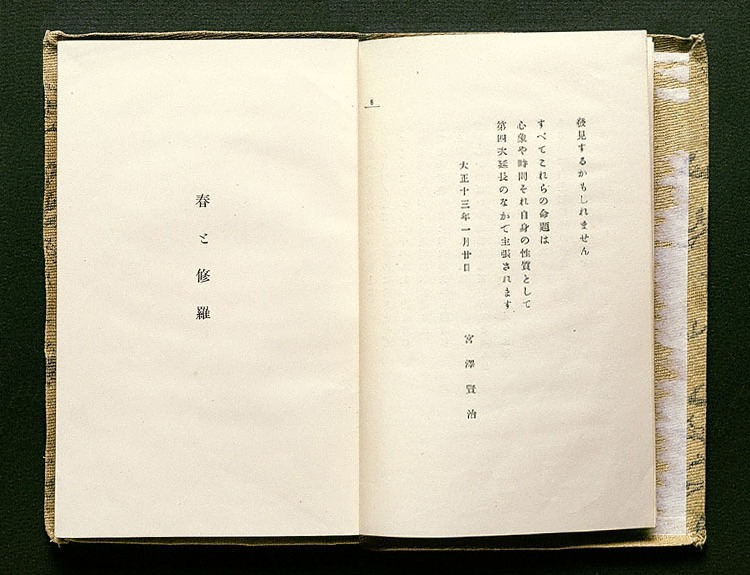 発見するかもしれません
すべてこれらの命題は
心象や時間それ自身の性質として
第四次延長のなかで主張されます
大正十三年一月廿日
宮澤賢治
春と修羅